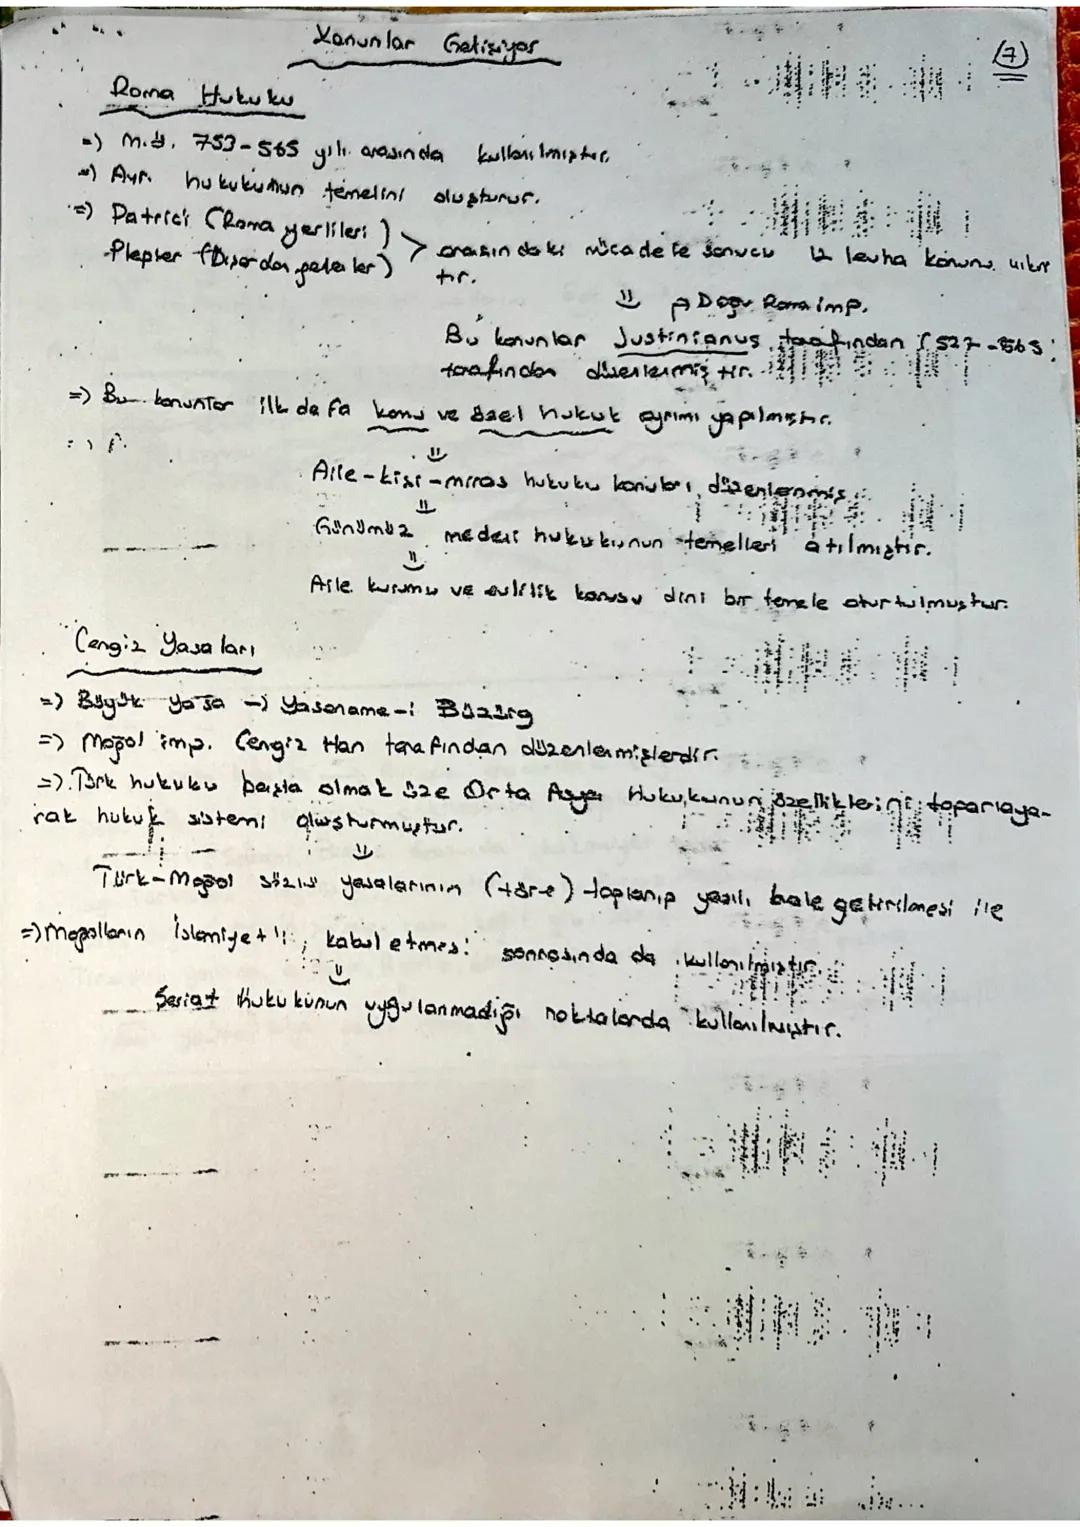 Kanunlar Gelişiyor
7
Roma Hukuku
=) M.Ö. 753-565 yılı arasında kullanılmıştır.
=) Avr. hukukunun temelini oluşturur.
=) Patrici (Roma yerlileri)
Plepler (Dışardan gelenler) > arasındaki mücadele sonucu 12 levha kanunu
tır.
Doğu Roma imp.
Bu kanunlar Justinianus tarafından (527-565)
tarafından düzenlenmiştir.
=) Bu kanunlar ilk defa kamu ve özel hukuk ayrımı yapılmıştır.
Aile-kişi-miras hukuku konuları düzenlenmiş
Günümüz medeni hukukunun temelleri atılmıştır.
Aile kurumu ve evlilik konusu dini bir temele oturtulmuştur.
Cengiz Yasaları
=) Büyük yasa -) Yasaname-i Büzürg
=) Moğol imp. Cengiz Han tarafından düzenlenmişlerdir.
=) Türk hukuku başta olmak üze Orta Asya Hukukunun özelliklerini toparlaya-
rak hukuk sistemi oluşturmuştur.
Türk-Moğol sözlü yasalarının (töre) toplanıp yazılı hale getirilmesi ile
=) Moğolların İslamiyet'i kabul etmesi sonrasında da kullanılmıştır.
Şeriat Hukukunun uygulanmadığı noktalarda kullanılmıştır.